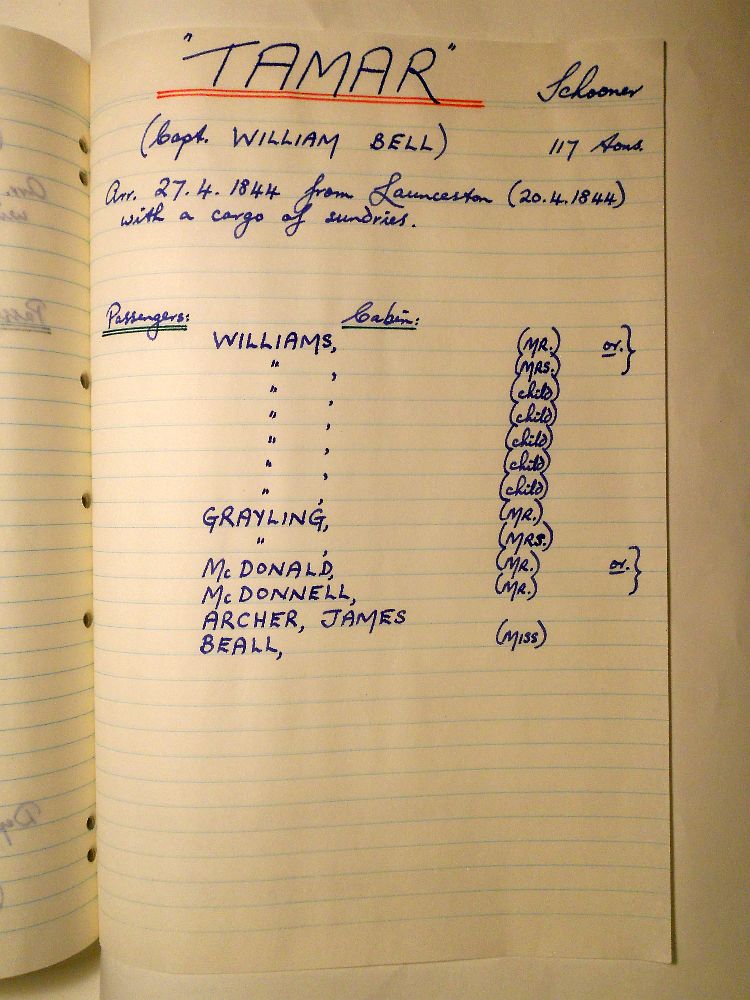 "TAMAR" Schooner
(Capt. WILLIAM BELL) 117 tons.
Arr. 27.4.1844 from Launceston (20.4.1844)
with a cargo of sundries.
Passengers: Cabin:
WILLIAMS, (MR.) or.}
" , (MRS.)
" , (child)
" , (child)
" , (child)
" , (child)
" , (child)
GRAYLING, (MR.)
" , (MRS.)
McDONALD, (MR.) or.}
McDONNELL, (MR.)
ARCHER, JAMES
BEALL, (MISS)